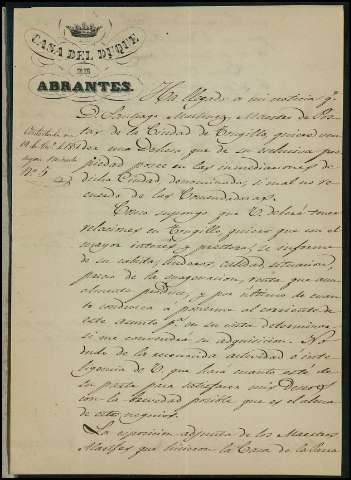 CASA DEL DUQUE
DE
ABRANTES.
Ha llegado a mi noticia q.e
D. Santiago Martinez, Maestro de
de la Ciudad de Trugillo, quiere
una Dehesa que de su esclusiva pro
piedad posee en las inmediaciones de
dicha Ciudad denominada, si mal no re
cuerdo de las
Como supongo que V. deberá tener
relaciones en Trugillo, quiero que con el
mayor interés y presteza, se informe
de su cabida, linderos, calidad, situacion,
precio de la enagenacion, renta que anu
almente produce, y por ultimo de cuan
to conduzca a ponerme al corriente de
este asunto p.a en su vista determinar
si me convendrá su adquisicion. No
dudo de la reconocida actividad é inte
ligencia de V. que hará cuanto esté de
su parte para satisfacer mis deseos
con la brevedad posible que es el alma
de estos negocios.
La esposicion adjunta de los Maestros
que hicieron la Casa de la
Contestada en
Nº 5